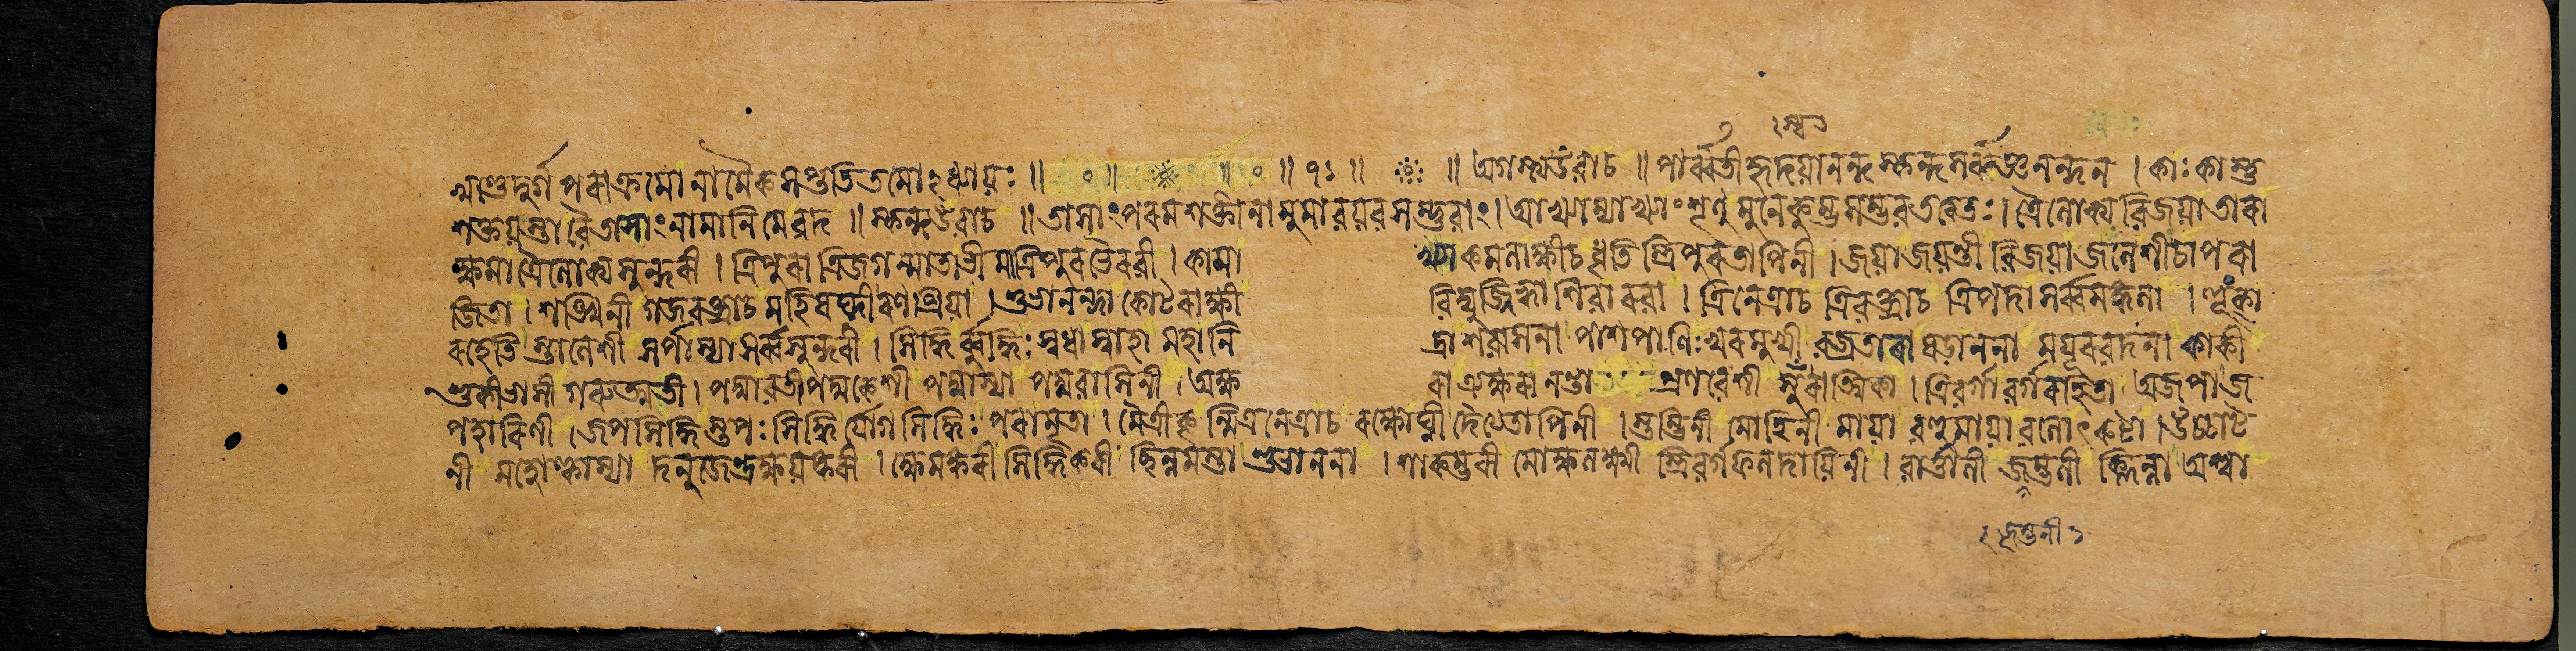 স্ব
ত্মাণ্ডদুর্গপরাক্রমো নামৈকসপ্ততিতমোঽধ্যায়ঃ ॥ ০ ॥ ॥ ০ ॥ ৭১ ॥ ॥ অগস্ত্য উবাচ ॥ পার্ব্বতীহৃদয়ানন্দ স্কন্দ সর্ব্বজ্ঞনন্দন । কাঃ কাস্তু
শক্তয়স্তা বৈ তাসাং নামানি মে বদ ॥ স্কন্দ উবাচ ॥ তাসাং পরমশক্তীনামুমাবয়বসম্ভুবাং । আখ্যাম্যাখ্যাং শৃণু মুনে কুম্ভসম্ভব তত্ত্বতঃ । ত্রৈলোক্যবিজয়া তারা
ক্ষমা ত্রৈলোক্যসুন্দরী । ত্রিপুরা ত্রিজগন্মাতা ভীমা ত্রিপুরভৈরবী । কামাখ্যা কমলাক্ষী চ ধৃতিস্ত্রিপুরতাপিনী । জয়া জয়ন্তী বিজয়া জলেশী চাপরা
জিতা । শঙ্খিনী গজবক্ত্রা চ মহিষঘ্নী রণপ্রিয়া । শুভানন্দা কোটরাক্ষী বিদ্যুজ্জিহ্বা শিবারবা । ত্রিনেত্রা চ ত্রিবক্ত্রা চ ত্রিপদা সর্ব্বমঙ্গলা । হুঁকা
রহেতিস্তালেশী সর্পাস্যা সর্ব্বসুন্দরী । সিদ্ধির্ব্বুদ্ধিঃ স্বধা স্বাহা মহানিদ্রা শবাসনা পাশপাণিঃ খরমুখী বজ্রতারা ষডাননা ময়ূরবদনা কাকী
শুকী ভাসী গরুত্মতী । পদ্মাবতী পদ্মকেশী পদ্মাস্যা পদ্মবাসিনী । অক্ষরা ত্র্যক্ষরা প্রণবেশী স্বরাত্মিকা । ত্রিবর্গা বর্গরহিতা অজপা জ
পহারিণী । জপসিদ্ধিস্তপঃসিদ্ধির্যোগসিদ্ধিঃ পরামৃতা । মৈত্রীকৃন্মিত্রনেত্রা চ রক্ষোঘ্নী দৈত্যতাপিনী । স্তম্ভিনী মোহিনী মায়া বহুমায়া বলোৎকটা । উচ্চাট
নী মহোল্কাস্যা দনুজেন্দ্রক্ষয়ঙ্করী । ক্ষেমঙ্করী সিদ্ধিকরী ছিন্নমস্তা শুভাননা । শাকম্ভরী মোক্ষলক্ষ্মী স্ত্রিবর্গফলদায়িনী । বার্ত্তালী জম্ভলী ক্লিন্না অশ্বা